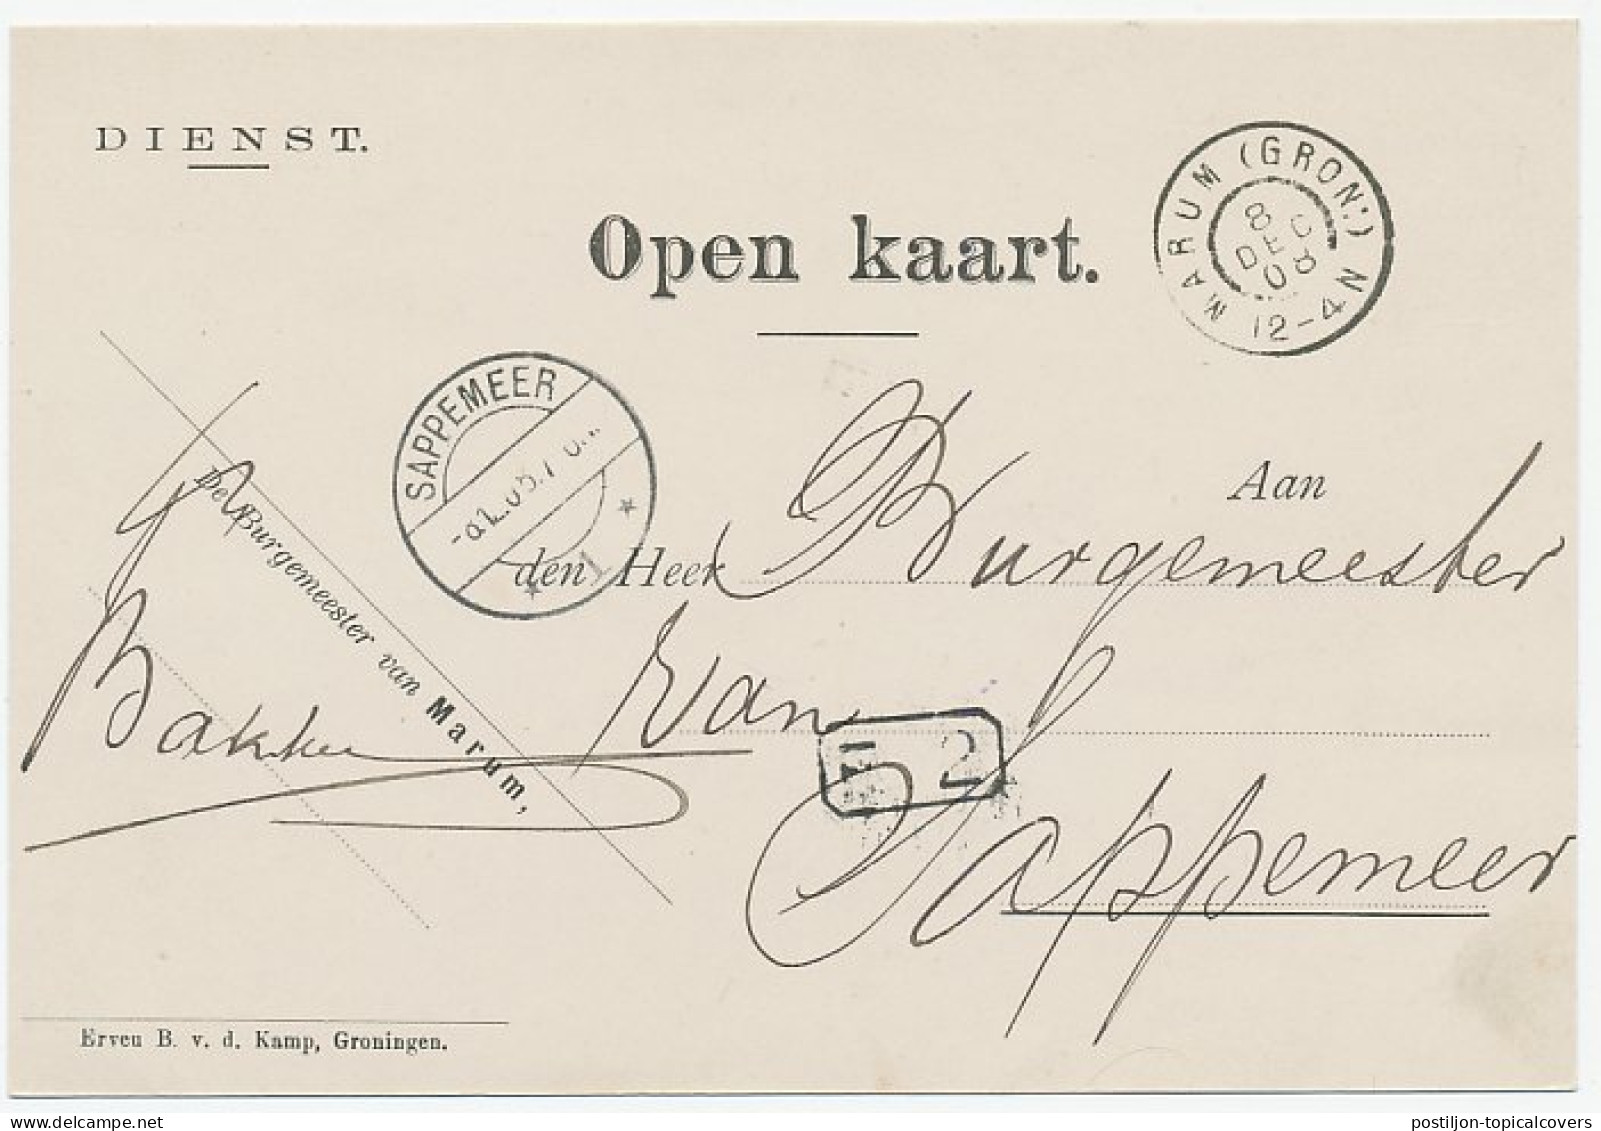 DIENST.
MARUM (GRON.)
8 DEC 08
12-4 N
Open kaart.
SAPPEMEER
Aan
den Heer Burgemeester
van
Sappemeer
De Burgemeester van Marum,
Bakker
2
Erven B. v. d. Kamp, Groningen.
delcampe.net
postiljon-topicalcovers